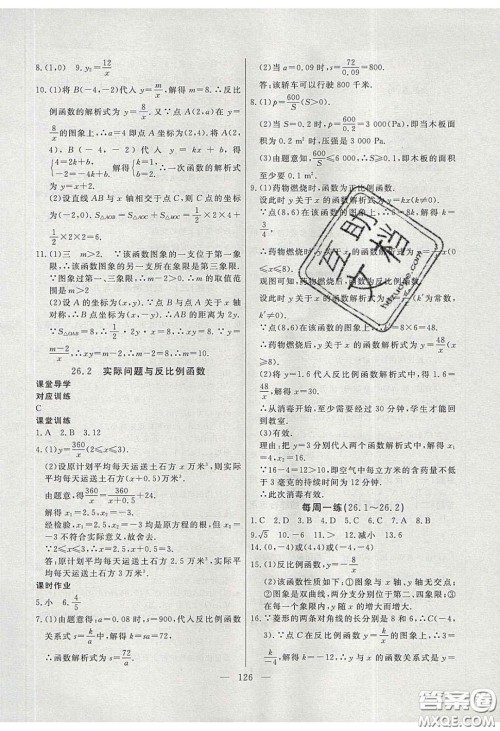 8.(1,0)  9.y₂=12/x
10.(1)将 B(-4,-2)代入 y=m/x,解得 m=8,∴反比
例函数的解析式为 y=8/x.又∵点 A(2,a)在反比例
函数的图象上,∴a=4即点 A 坐标为(2,4),将 A(2,
4),B(-4,-2)代入 y=kx+b,得
{4=2k+b, -2=-4k+b.解得{k=1, b=2.∴一次函数的解析式
为 y=x+2.
(2)设直线 AB 与 x 轴相交于点 C,则 C 点的坐标为
(-2,0),∴S△AOB=S△AOC+S△BOC=1/2×2×4+
1/2×2×2=6.
11.(1)三 m>2. ∵该函数图象的一支位于第一象
限,∴该函数图象的另一支所在的象限是第三象限.
∵图象过第一,三象限,∴m-2>0,∴m 的取值范
围是 m>2
(2)设点 A 的坐标为(x,y).∵点 B 与点 A 关于 x 轴
对称,∴B 点坐标为(x,-y),∴AB 的距离为 2y.
∵S△OAB=6,∴1/2·2y·x=8,∴xy=8.∵y=
(m-2)/x,∴xy=m-2=8,∴m=10.
26.2 实际问题与反比例函数
课堂导学
对应训练
C
课堂训练
1.A 2.B 3.12
4.(1)y=360/x(2≤x≤3).
(2)设原计划平均每天运送土石方 x 万米³,则实际
平均每天运送土石方(x+0.5)万米³,
由题意,得 360/x-360/(x+0.5)=24.
解得 x₁=2.5,x₂=-3.
经检验,x₁=2.5,x₂=-3 均为原方程的根,但 x₂=
-3 不符合实际意义,故舍去.
答:原计划平均每天运送土石方 2.5 万米³,实际平
均每天运送土石方 3 万米³.
课时作业
5.小 6.4/5
7.(1)由题意得,a=0.08 时,s=900,代入反比例函数
关系式 s=k/a 中,解得 k=sa=72,
∴函数解析式为 s=72/a.
(2)当 a=0.09 时,s=72/0.09=800.
答:该轿车可以行驶 800 千米.
8.(1)p=600/S(S>0).
(2)当 S=0.2 时,p=600/0.2=3 000(Pa),即当木板面
积为 0.2 m² 时,压强是 3 000 Pa.
(3)由题意知,600/S≤6 000,∴S≥0.1,即木板面积
至少要有 0.1 m².
9.(1)药物燃烧时,函数为正比例函数.
设此时 y 关于 x 的函数解析式为 y=kx(k≠0).
∵点(8,6)在该函数图象上,∴6=8k,∴k=
3/4,
∴药物燃烧时,y 关于 x
观图可知,药物燃烧后,函数为反比例函数.
设此时 y 关于 x 的函数解析式为
∵点(8,6)在该函数图象上,∴k'=8×6=48,
∴药物燃烧后,y 关于 x 的函数解析式为 y=48/x(x>8).
(2)将 y=1.6 代入反比例函数解析式 y=48/x,1.6=
48/x,解得 x=30.
∴从消毒开始,至少需要经过 30 分钟,学生才能回到
教室.
(3)有效.
理由:把 y=3 分别代入两个函数解析式,解得 x₁
=4,x₂=16.
∵16-4=12>10,即空气中每立方米的含药量不低
于 3 毫克的持续时间为 12 分钟.
∴此次消毒有效.
每周一练(26.1~26.2)
1.C 2.D 3.B 4.D 5.C 6.B 7.C 8.B
9.√5 10.-6 11.> 12.减小 13.
14.(0,-4)或(-4,-4)或(4,4)
15.(1)反比例函数的解析式为 y=-8/x.
(2)该函数性质如下:①图象与 x 轴,y 轴无交点;
②图象是双曲线,两支分别位于第二,四象限;③在
每一个象限内,y 随 x 的增大而增大.
16.∵菱形的两条对角线的长分别是 8 和 4,∴C(4,
-2).∵点 C 在反比例函数 y=k/x 的图象上,∴-2
=k/4,解得 k=-8.∴y 关于 x 的函数关系式是 y=
— 126 —
互助
文档
答案圈
MXQE.COM